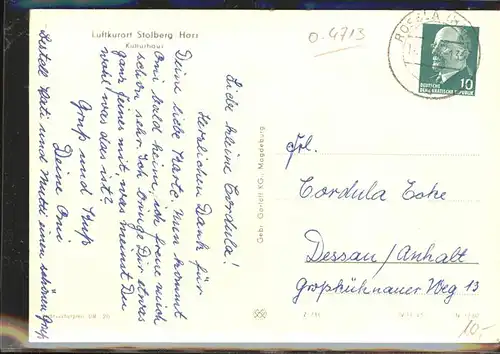 Luftkurort Stolberg Harz
Kulturhaus
O-4713
Liebe kleine Cordula!
Herzlichen Dank für
Deine liebe Karte. Nun kommt
Omi bald heim, ich freue mich
schon sehr. Ich bringe Dir etwas
ganz feines mit, was meinst Du
wohl was das ist?
Gruß und Kuß
Deine Omi
Vati und Mutti einen schönen Gruß
Gebr. Garloff KG., Magdeburg
ROSSLA
DEUTSCHE
DEMOKRATISCHE REPUBLIK
10
Frl.
Cordula
Dessau/Anhalt
Großkühnauer Weg 13
10,-